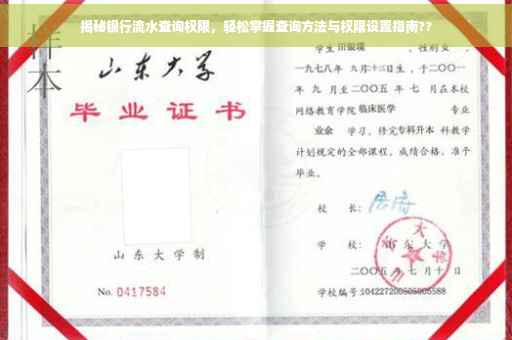 揭秘银行流水查询权限，轻松掌握查询方法与权限设置指南??
样本
山东大学
毕业证书
山东大学制
No. 0417584
学生 田银瑞 ，性别 ，
一九七八年 九月十三日生，于二〇〇一
年 九 月至二〇〇五 年 七 月在本校
网络教育学院 临床医学 专业
业余 学习，修完专科升本 科教学
计划规定的全部课程，成绩合格，准予
毕业。
校 长：
学 校： 山东大学
二〇〇五 年 七 月 十 日
学校编号:104227200505005588